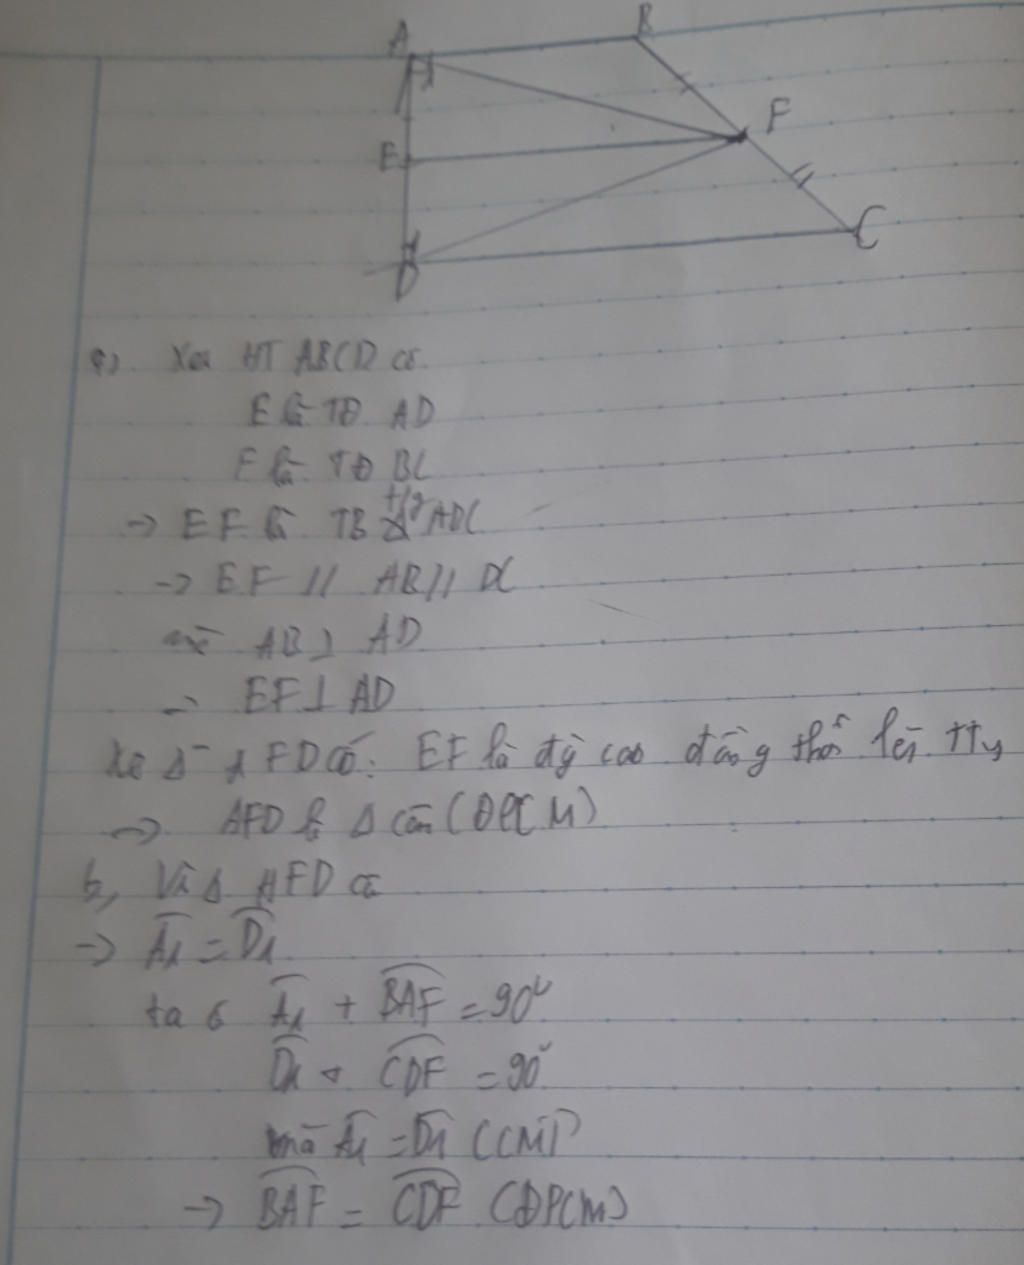 A
B
F
E
C
D
a). Xét HT ABCD có
E là TĐ AD
F là TĐ BC
-> EF là TB ADC
-> EF // AB // DC
mà AB ⊥ AD
-> EF ⊥ AD
Xé Δ AFD có: EF là đg cao đồng thời là TTy
-> AFD là Δ cân (ĐPCM)
b, Vì Δ AFD cân
-> A1 = D1
ta có A1 + BAF = 90°
D1 + CDF = 90°
mà A1 = D1 (CMT)
-> BAF = CDF (ĐPCM)